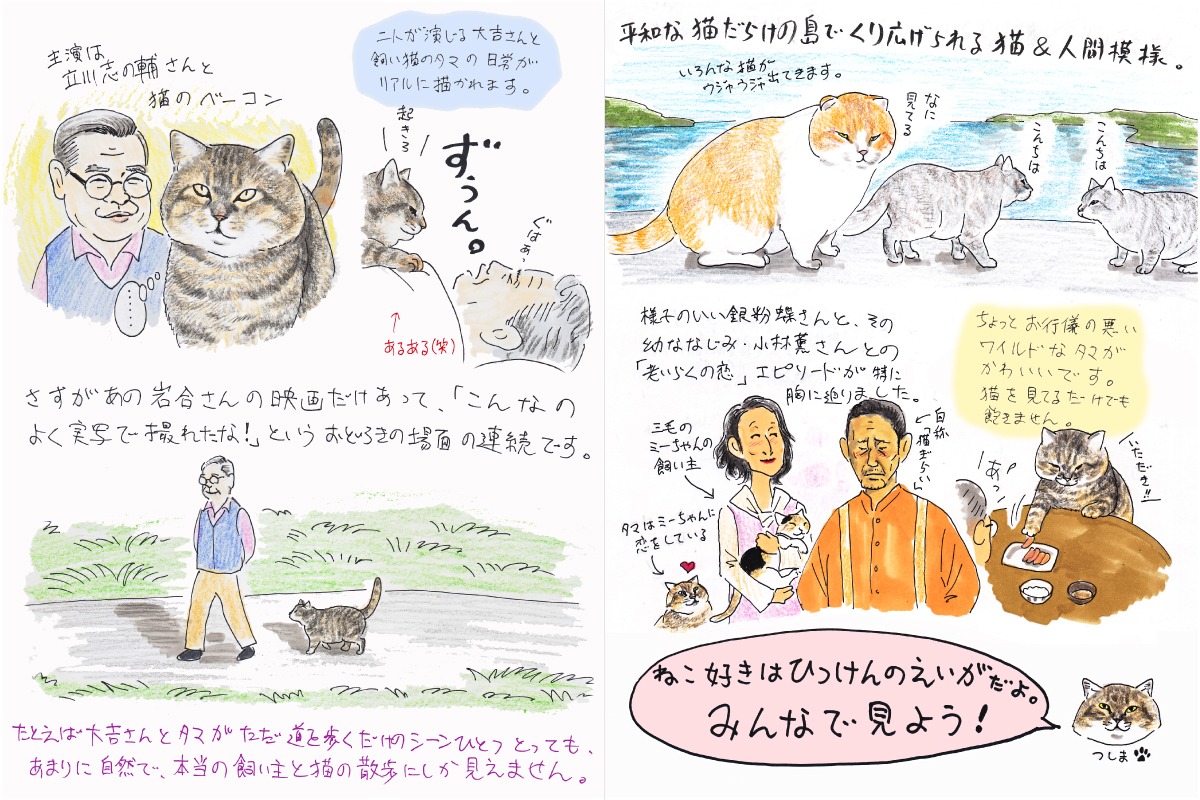 主演は
立川志の輔さんと
猫のベーコン
二人が演じる大吉さんと
飼い猫のタマの日常が
リアルに描かれます。
起きろ
ずぅん。
ぐはぁっ
↑
あるある(笑)
……
さすがあの岩合さんの映画だけあって、「こんなの
よく実写で撮れたな!」というおどろきの場面の連続です。
たとえば大吉さんとタマがただ道を歩くだけのシーンひとつとっても、
あまりに自然で、本当の飼い主と猫の散歩にしか見えません。
平和な猫だらけの島でくり広げられる猫&人間模様。
いろんな猫が
ウジャウジャ出てきます。
なに
見てる
こんちは
こんちは
様子のいい銀粉蝶さんと、その
幼ななじみ・小林薫さんとの
「老いらくの恋」エピソードが特に
胸に迫りました。
ちょっとお行儀の悪い
ワイルドなタマが
かわいいです。
猫を見てるだけでも
飽きません。
三毛の
ミーちゃんの
飼い主
自称
「猫ぎらい」
タマはミーちゃんに
恋をしている
あっ
いただき!!
ねこ好きはひっけんのえいがだよ。
みんなで見よう!
つしま